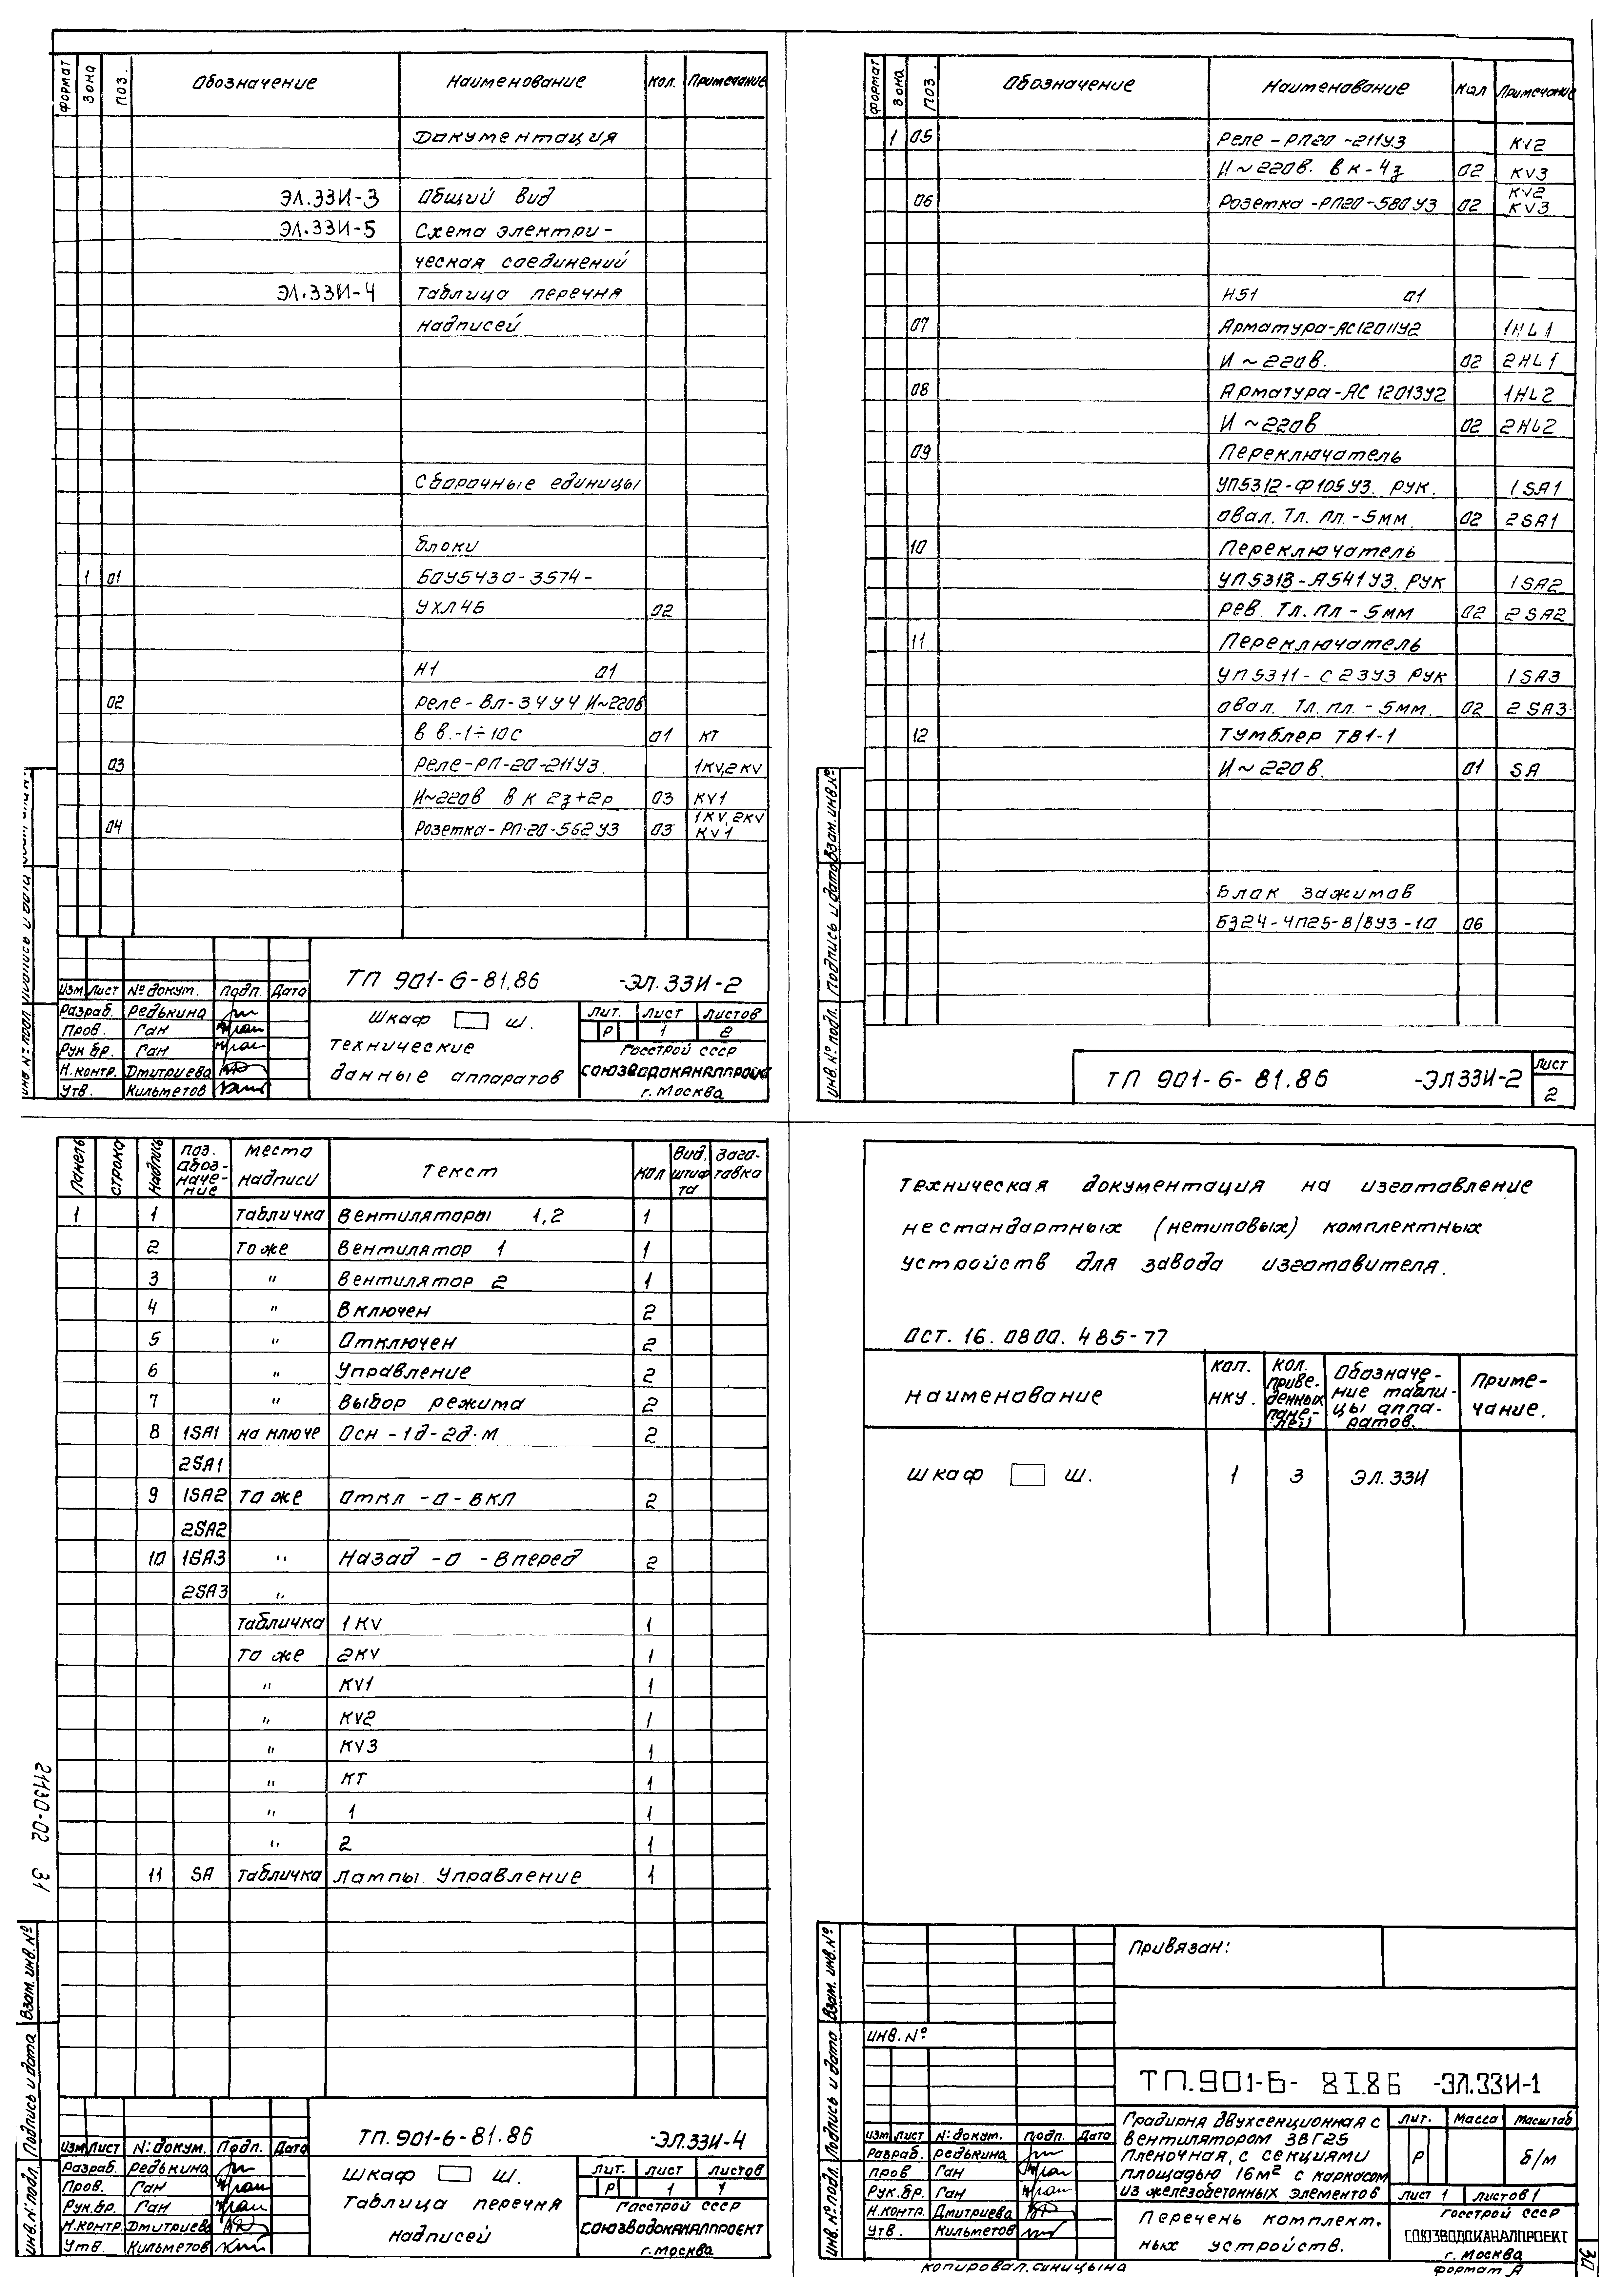 Формат Зона Поз. Обозначение Наименование Кол. Примечание
Документация
ЭЛ.ЗЗИ-3 Общий вид
ЭЛ.ЗЗИ-5 Схема электри-
ческая соединений
ЭЛ.ЗЗИ-4 Таблица перечня
надписей
Сборочные единицы
Блоки
1 01 БОУ5430-3574-
УХЛ4Б 02
Н1 01
02 Реле-ВЛ-34У4 И~220В
в в.-1÷10с 01 КТ
03 Реле-РП-20-211У3. 1KV,2KV
И~220в в к 2з+2р 03 KV1
04 Розетка-РП-20-562У3 03 1KV,2KV
KV1
ТП 901-6-81.86 -ЭЛ.ЗЗИ-2
Изм Лист № докум. Подп. Дата
Разраб. Редькина
Пров. Ган
Рук бр. Ган
Н.контр. Дмитриева
Утв. Кильметов
Шкаф ш.
Технические
данные аппаратов
Лит. Лист Листов
Р 1 2
Госстрой СССР
СОЮЗВОДОКАНАЛПРОЕКТ
г. Москва
Формат Зона Поз. Обозначение Наименование Кол Примечание
1 05 Реле-РП20-211У3 KV2
И~220в. в к-4з 02 KV3
06 Розетка-РП20-580У3 02 KV2
KV3
Н51 01
07 Арматура-АС12011У2 1HL1
И~220в. 02 2HL1
08 Арматура-АС 12013У2 1HL2
И~220в 02 2HL2
09 Переключатель
УП5312-Ф105У3. рук. 1SA1
овал. Тл. пл.-5мм. 02 2SA1
10 Переключатель
УП5313-А541У3. рук 1SA2
рев. Тл. пл-5мм 02 2SA2
11 Переключатель
УП5311-С23У3 рук 1SA3
овал. Тл. пл.-5мм. 02 2SA3
12 Тумблер ТВ1-1
И~220в. 01 SA
Блок зажимов
БЗ24-4П25-В/ВУ3-10 06
Инв. № подл. Подпись и дата Взам. инв. №
ТП 901-6-81.86 -ЭЛЗЗИ-2
Лист
2
Панель Строка Надпись Поз. обоз-
наче-
ние Место
надписи Текст Кол Вид.
шриф
та Заго-
товка
1 1 Табличка Вентиляторы 1,2 1
2 То же Вентилятор 1 1
3 " Вентилятор 2 1
4 " Включен 2
5 " Отключен 2
6 " Управление 2
7 " Выбор режима 2
8 1SA1 на ключе Осн-1д-2д-м 2
2SA1
9 1SA2 То же Откл-0-вкл 2
2SA2
10 1SA3 " Назад-0-вперед 2
2SA3 "
Табличка 1KV 1
То же 2KV 1
" KV1 1
" KV2 1
" KV3 1
" КТ 1
" 1 1
" 2 1
11 SA Табличка Лампы. Управление 1
21130-02 31
Инв. № подл. Подпись и дата Взам. инв. №
ТП.901-6-81.86 -ЭЛ.ЗЗИ-4
Изм Лист № докум. Подп. Дата
Разраб. Редькина
Пров. Ган
Рук.бр. Ган
Н.контр. Дмитриева
Утв. Кильметов
Шкаф ш.
Таблица перечня
надписей
Лит. Лист Листов
Р 1 1
Госстрой СССР
СОЮЗВОДОКАНАЛПРОЕКТ
г. Москва
Техническая документация на изготовление
нестандартных (нетиповых) комплектных
устройств для завода изготовителя.
ОСТ. 16. 0800. 485-77
Наименование Кол.
НКУ. Кол.
приве-
денных
пане-
лей Обозначе-
ние табли-
цы аппа-
ратов. Приме-
чание.
Шкаф ш. 1 3 ЭЛ.ЗЗИ
Привязан:
Инв. №
Инв. № подл. Подпись и дата Взам. инв. №
ТП.901-6-81.86 -ЭЛ.ЗЗИ-1
Изм Лист № докум. Подп. Дата
Разраб. Редькина
Пров Ган
Рук.бр. Ган
Н.контр. Дмитриева
Утв. Кильметов
Градирня двухсекционная с
вентилятором 3ВГ25
пленочная, с секциями
площадью 16м² с каркасом
из железобетонных элементов
Лит. Масса Масштаб
Р б/м
Лист 1 Листов 1
Перечень комплект-
ных устройств.
Госстрой СССР
СОЮЗВОДОКАНАЛПРОЕКТ
г. Москва
Копировал. Синицына Формат А
30